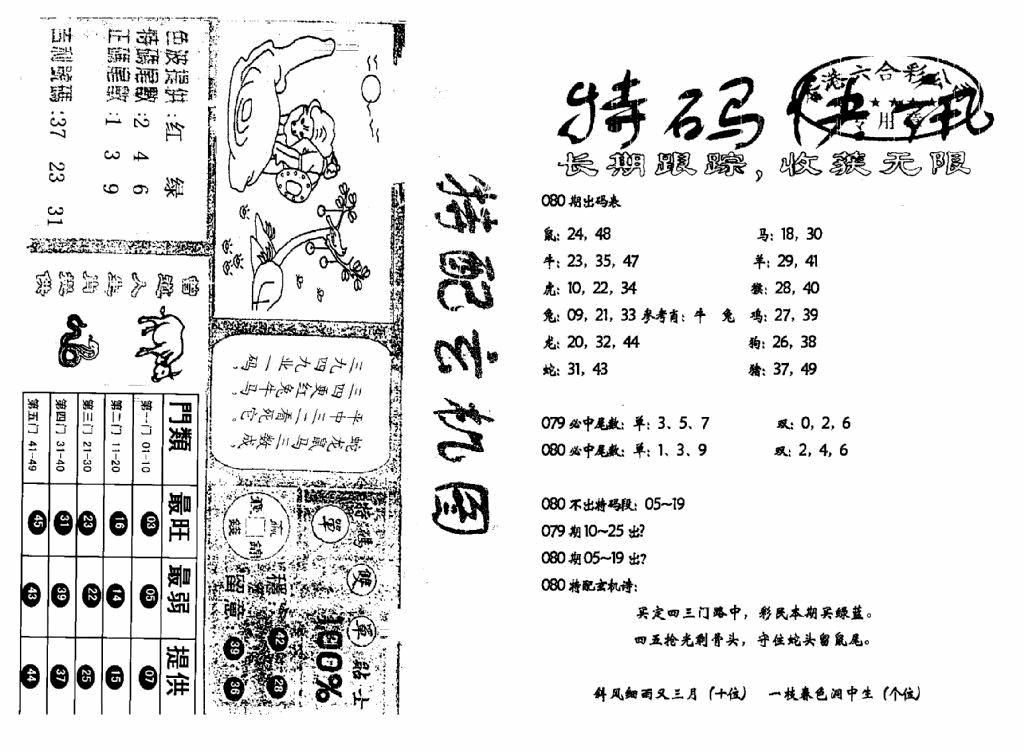 特码快讯
六合彩
长期跟踪，收获无限
080期出码表
鼠：24，48
马：18，30
牛：23，35，47
羊：29，41
虎：10，22，34
猴：28，40
兔：09，21，33 参考肖：牛 兔
鸡：27，39
龙：20，32，44
狗：26，38
蛇：31，43
猪：37，49
079必中尾数：单：3、5、7
双：0，2，6
080必中尾数：单：1、3、9
双：2，4，6
080不出特码段：05~19
079期10~25出？
080期05~19出？
080特配玄机诗：
买定四三门路中，彩民本期买绿蓝。
四五抢光剩骨头，守住蛇头留鼠尾。
斜风细雨又三月（十位） 一枝春色涧中生（个位）
特配玄机图
色波提供：红 绿
特碼尾數：2 4 6
正碼尾數：1 3 9
吉利號碼：37 23 31
曾道人生肖提供
三九四九业一码，
三四更红兔牛马。
斗中三二看死它。
蛇龙鼠马三数成，
門類 最旺 最弱 提供
第一门 01-10 03 05 07
第二门 11-20 16 14 15
第三门 21-30 23 22 25
第四门 31-40 31 39 37
第五门 41-49 45 43 44
特碼 單 雙
單
贴士
100%
42 28
39 36